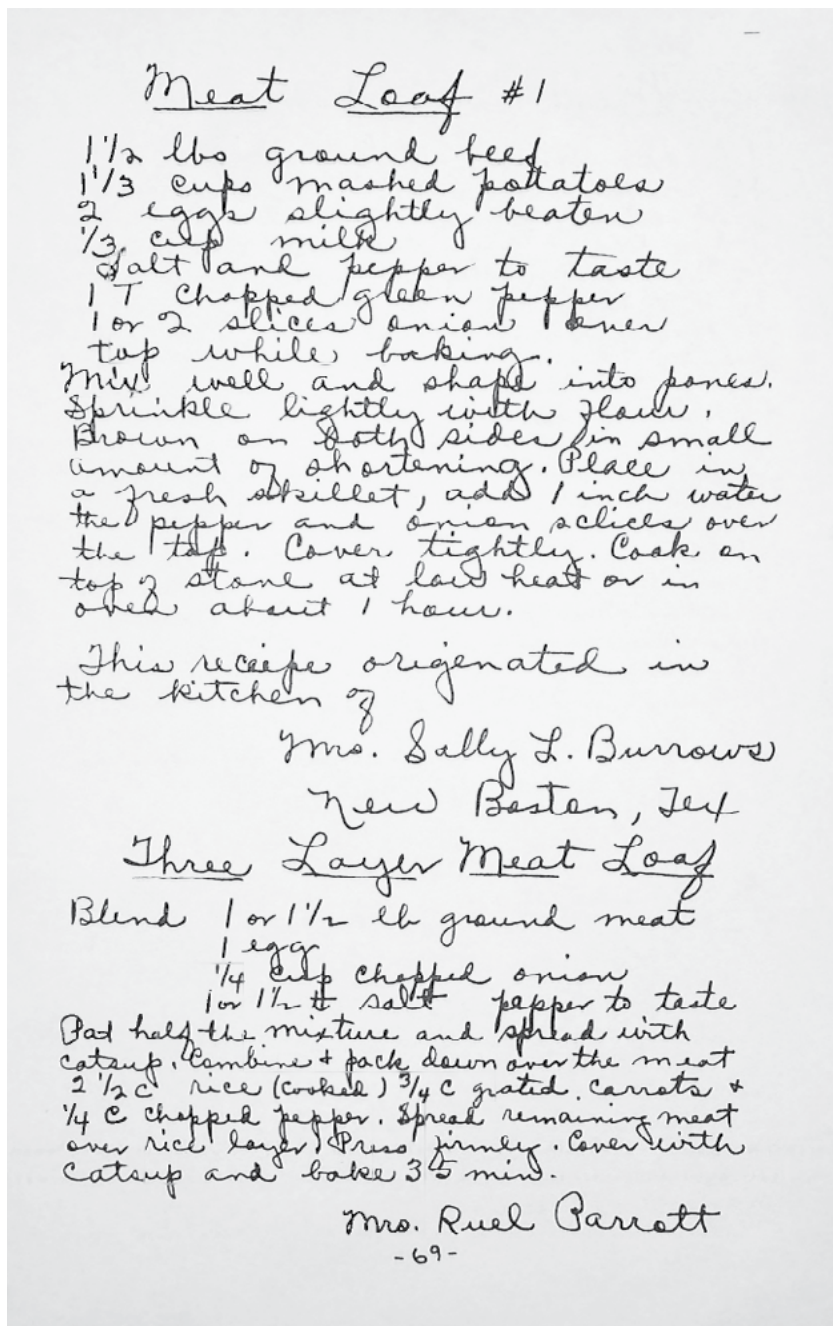 Meat Loaf #1
1 1/2 lbs ground beef
1 1/3 cups mashed pottatoes
2 eggs slightly beaten
1/3 cup milk
Salt and pepper to taste
1 T chopped green pepper
1 or 2 slices onion over
top while baking.
Mix well and shape into pones.
Sprinkle lightly with flour.
Brown on both sides in small
amount of shortening. Place in
a fresh skillet, add 1 inch water
the pepper and onion sclices over
the top. Cover tightly. Cook on
top of stove at low heat or in
oven about 1 hour.
This receipe origenated in
the kitchen of
Mrs. Sally L. Burrows
New Boston, Tex
Three Layer Meat Loaf
Blend 1 or 1 1/2 lb ground meat
1 egg
1/4 cup chopped onion
1 or 1 1/2 t salt pepper to taste
Pat half the mixture and spread with
catsup. Combine + pack down over the meat
2 1/2 C rice (cooked) 3/4 C grated carrots +
1/4 C chopped pepper. Spread remaining meat
over rice layer. Press firmly. Cover with
catsup and bake 35 min.
Mrs. Ruel Parrott
-69-